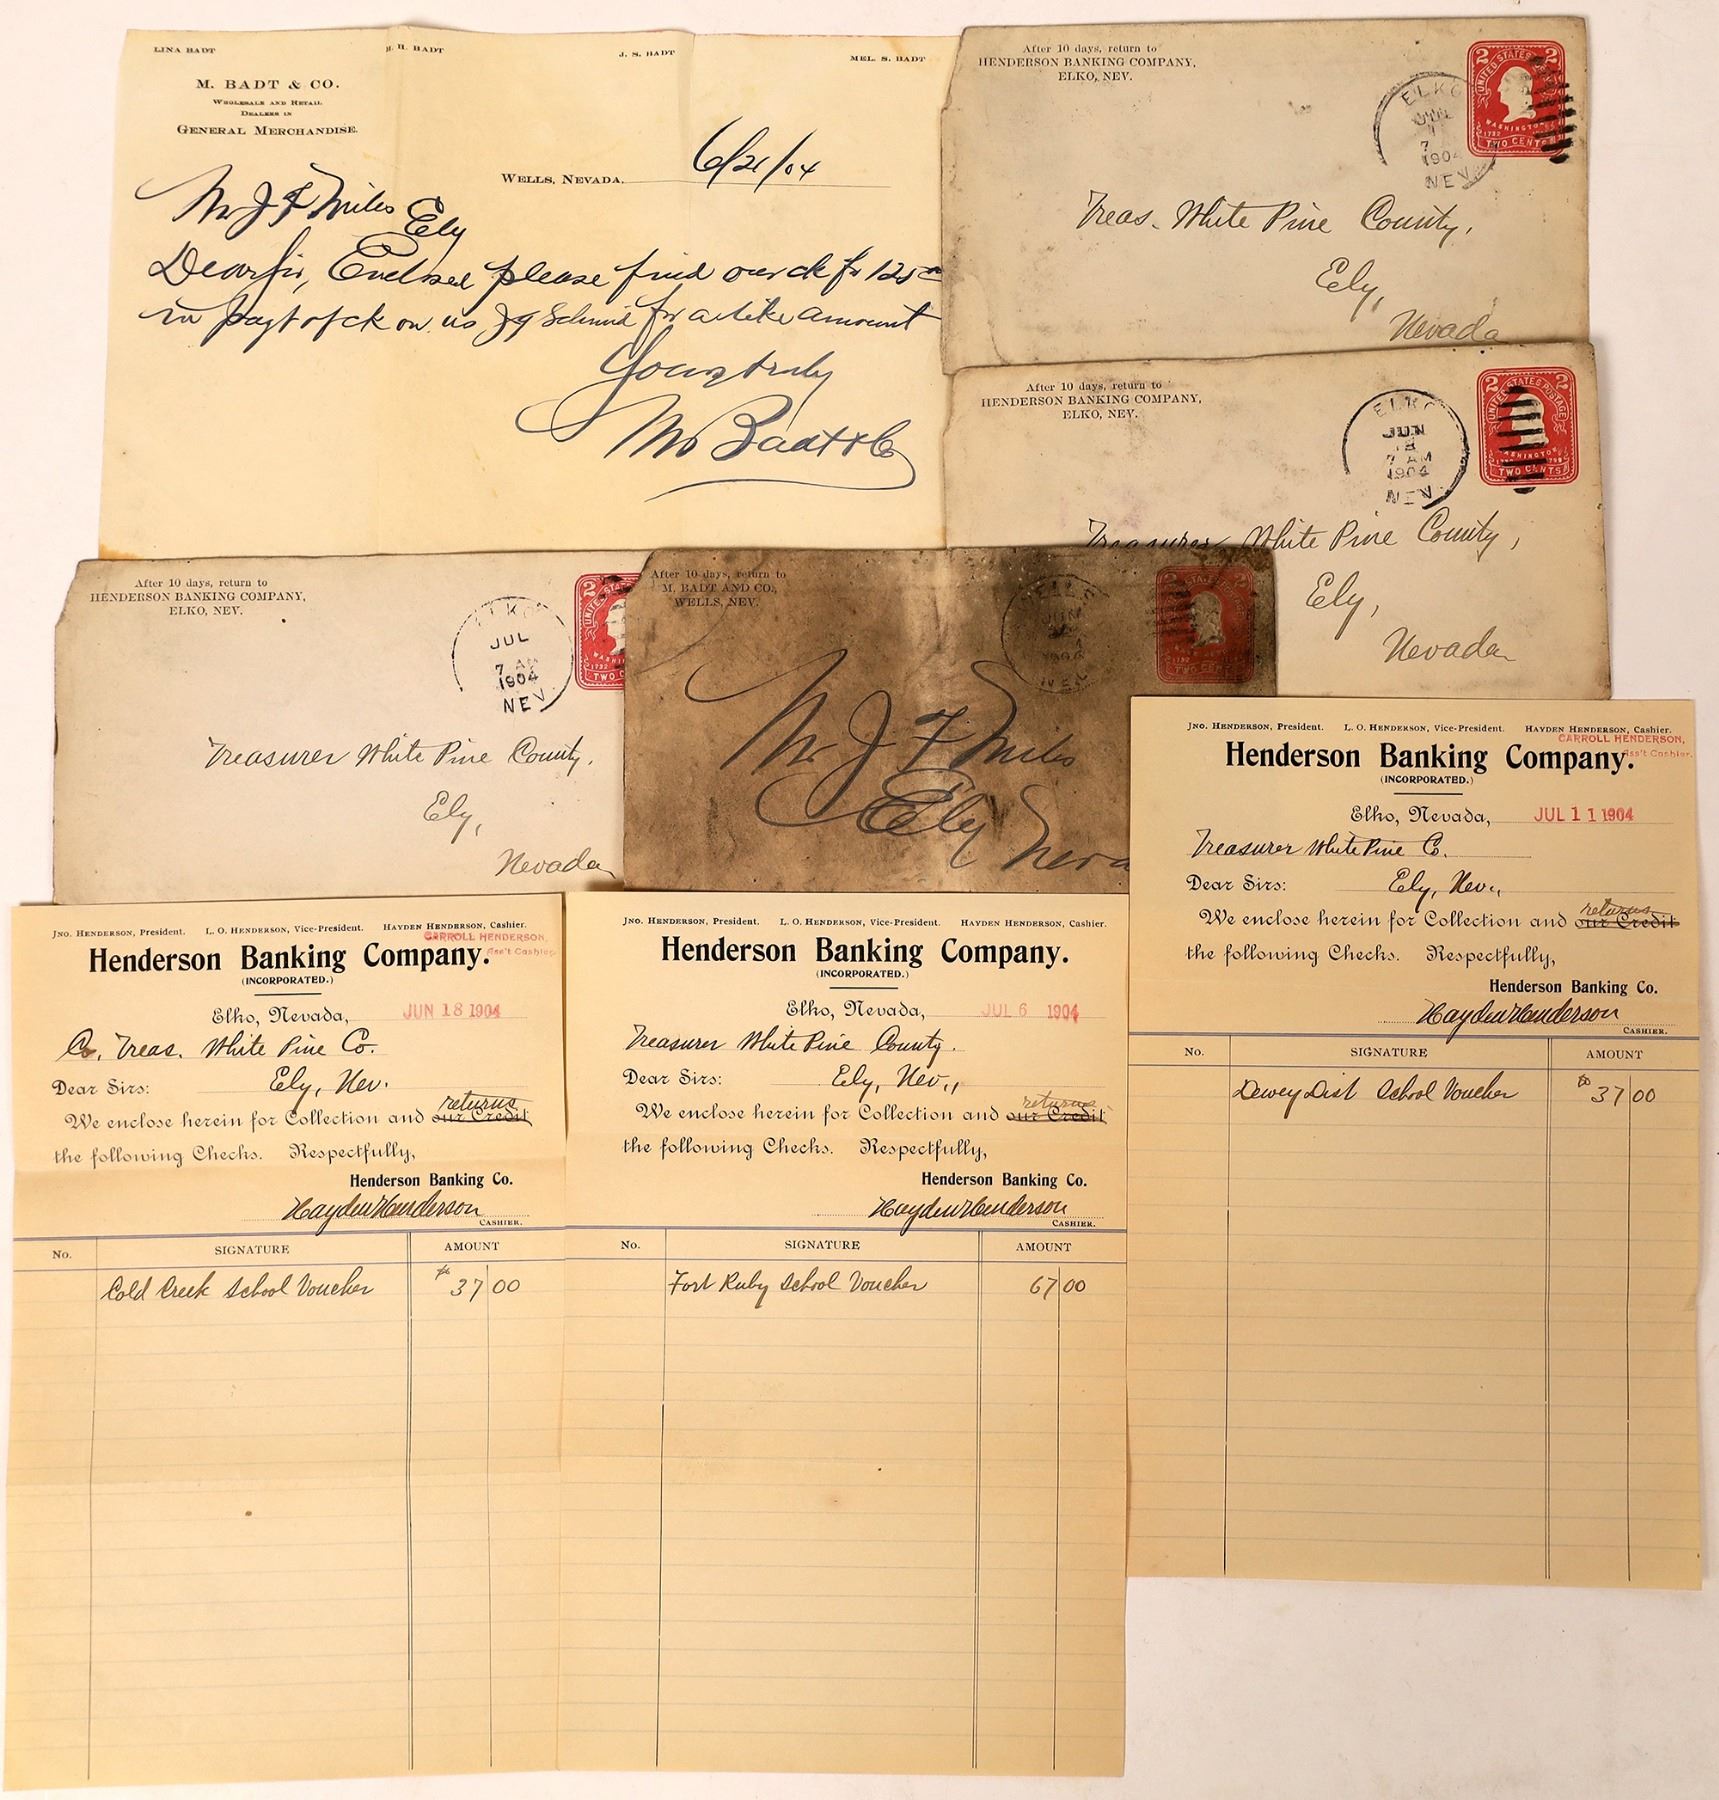 LINA BADT
H. H. BADT
J. S. BADT
MEL. S. BADT
M. BADT & CO.
WHOLESALE AND RETAIL
DEALERS IN
GENERAL MERCHANDISE.
WELLS, NEVADA. 6/21/04
Mr J F Miles Ely
Dear sir, Enclosed please find our ck for 125 00
in payt of ck on us J G Schmid for a like amount
Yours truly
M Badt & Co
After 10 days, return to
HENDERSON BANKING COMPANY,
ELKO, NEV.
ELKO
7
1904
NEV
UNITED STATES POSTAGE
2 2
WASHINGTON
1732
TWO CENTS
Treas. White Pine County,
Ely,
Nevada
After 10 days, return to
HENDERSON BANKING COMPANY,
ELKO, NEV.
ELKO
JUN
18
7 AM
1904
NEV
2 2
UNITED STATES POSTAGE
WASHINGTON
TWO CENTS
Treasurer White Pine County,
Ely,
Nevada
After 10 days, return to
HENDERSON BANKING COMPANY,
ELKO, NEV.
ELKO
JUL
7 AM
1904
NEV
2
UNITED
1732
TWO C
Treasurer White Pine County.
Ely,
Nevada
After 10 days, return to
M. BADT AND CO.,
WELLS, NEV.
JUN
NEV
TWO CENTS
Mr J F Miles
Ely
Neva
JNO. HENDERSON, President. L. O. HENDERSON, Vice-President. HAYDEN HENDERSON, Cashier.
CARROLL HENDERSON,
Ass't Cashier.
Henderson Banking Company.
(INCORPORATED.)
Elko, Nevada, JUL 11 1904
Treasurer White Pine Co.
Dear Sirs: Ely, Nev.,
returns
We enclose herein for Collection and our Credit
the following Checks. Respectfully,
Henderson Banking Co.
Hayden Henderson
CASHIER.
No. SIGNATURE AMOUNT
Dewey Dist School Voucher $ 37 00
JNO. HENDERSON, President. L. O. HENDERSON, Vice-President. HAYDEN HENDERSON, Cashier.
CARROLL HENDERSON,
Ass't Cashier
Henderson Banking Company.
(INCORPORATED.)
Elko, Nevada, JUN 18 1904
Co. Treas. White Pine Co.
Dear Sirs: Ely, Nev.
returns
We enclose herein for Collection and our Credit
the following Checks. Respectfully,
Henderson Banking Co.
Hayden Henderson
CASHIER.
No. SIGNATURE AMOUNT
Cold Creek School Voucher $ 37 00
JNO. HENDERSON, President. L. O. HENDERSON, Vice-President. HAYDEN HENDERSON, Cashier.
Henderson Banking Company.
(INCORPORATED.)
Elko, Nevada, JUL 6 1904
Treasurer White Pine County.
Dear Sirs: Ely, Nev.,
returns
We enclose herein for Collection and our Credit
the following Checks. Respectfully,
Henderson Banking Co.
Hayden Henderson
CASHIER.
No. SIGNATURE AMOUNT
Fort Ruby School Voucher 67 00